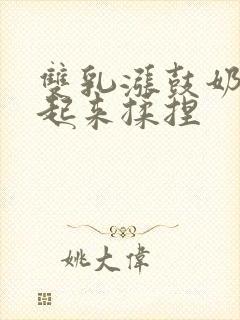 雙乳漲鼓奶
起来揉捏
姚大偉